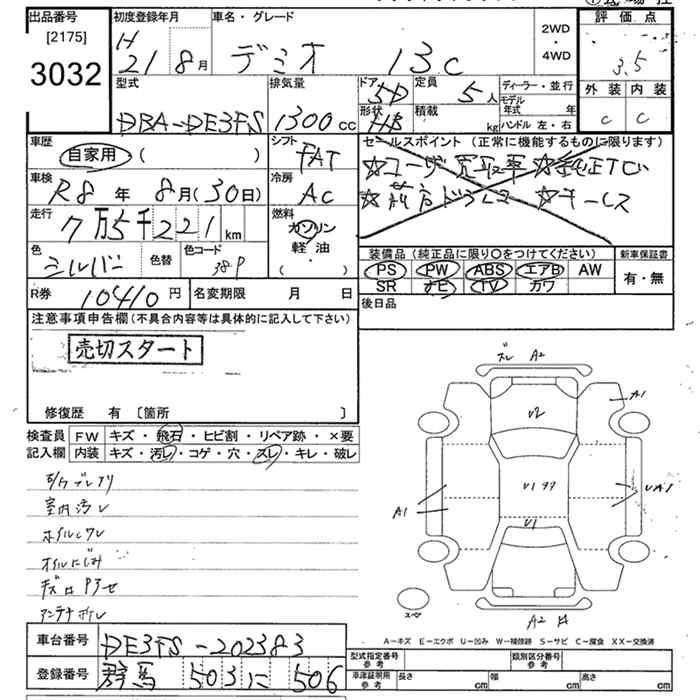 出品番号
[2175]
3032
初度登録年月
H
21 8月
車名・グレード
デミオ 13C
2WD
・
4WD
評価点
3.5
外装 内装
C C
型式
DBA-DE3FS
排気量
1300 cc
ドア
5D
形状
HB
定員
5人
積載
kg
ディーラー・並行
モデル
年式 年
ハンドル 左・右
車歴
自家用 ( )
シフト
FAT
セールスポイント (正常に機能するものに限ります)
☆ユーザー買取車 ☆純正TCい
☆前方ドラレコ ☆キーレス
車検
R8年 8月(30日)
冷房
AC
走行
7万5千221km
燃料
ガソリン
軽油
( )
色
シルバー
色替
色コード
38P
装備品 (純正品に限り〇をつけてください)
新車保証書
PS PW ABS エアB AW
SR ナビ TV カワ
有・無
R券 10410円
名変期限 月 日
後日品
注意事項申告欄(不具合内容等は具体的に記入して下さい)
売切スタート
修復歴 有 [箇所 ]
検査員
記入欄
FW キズ・飛石・ヒビ割・リペア跡・×要
内装 キズ・汚レ・コゲ・穴・スレ・キレ・破レ
室内汚レ
オイルにじみ
ズレ A2
A1
U2
U1
A1
U1
A2
スペア
A-キズ E-エクボ U-凹み W-補修跡 S-サビ C-腐食 XX-交換済
車台番号 DE3FS-202383
登録番号 群馬 503に 506
型式指定番号
参考
類別区分番号
参考
車庫証明用
参考
長さ cm
幅 cm
高さ cm